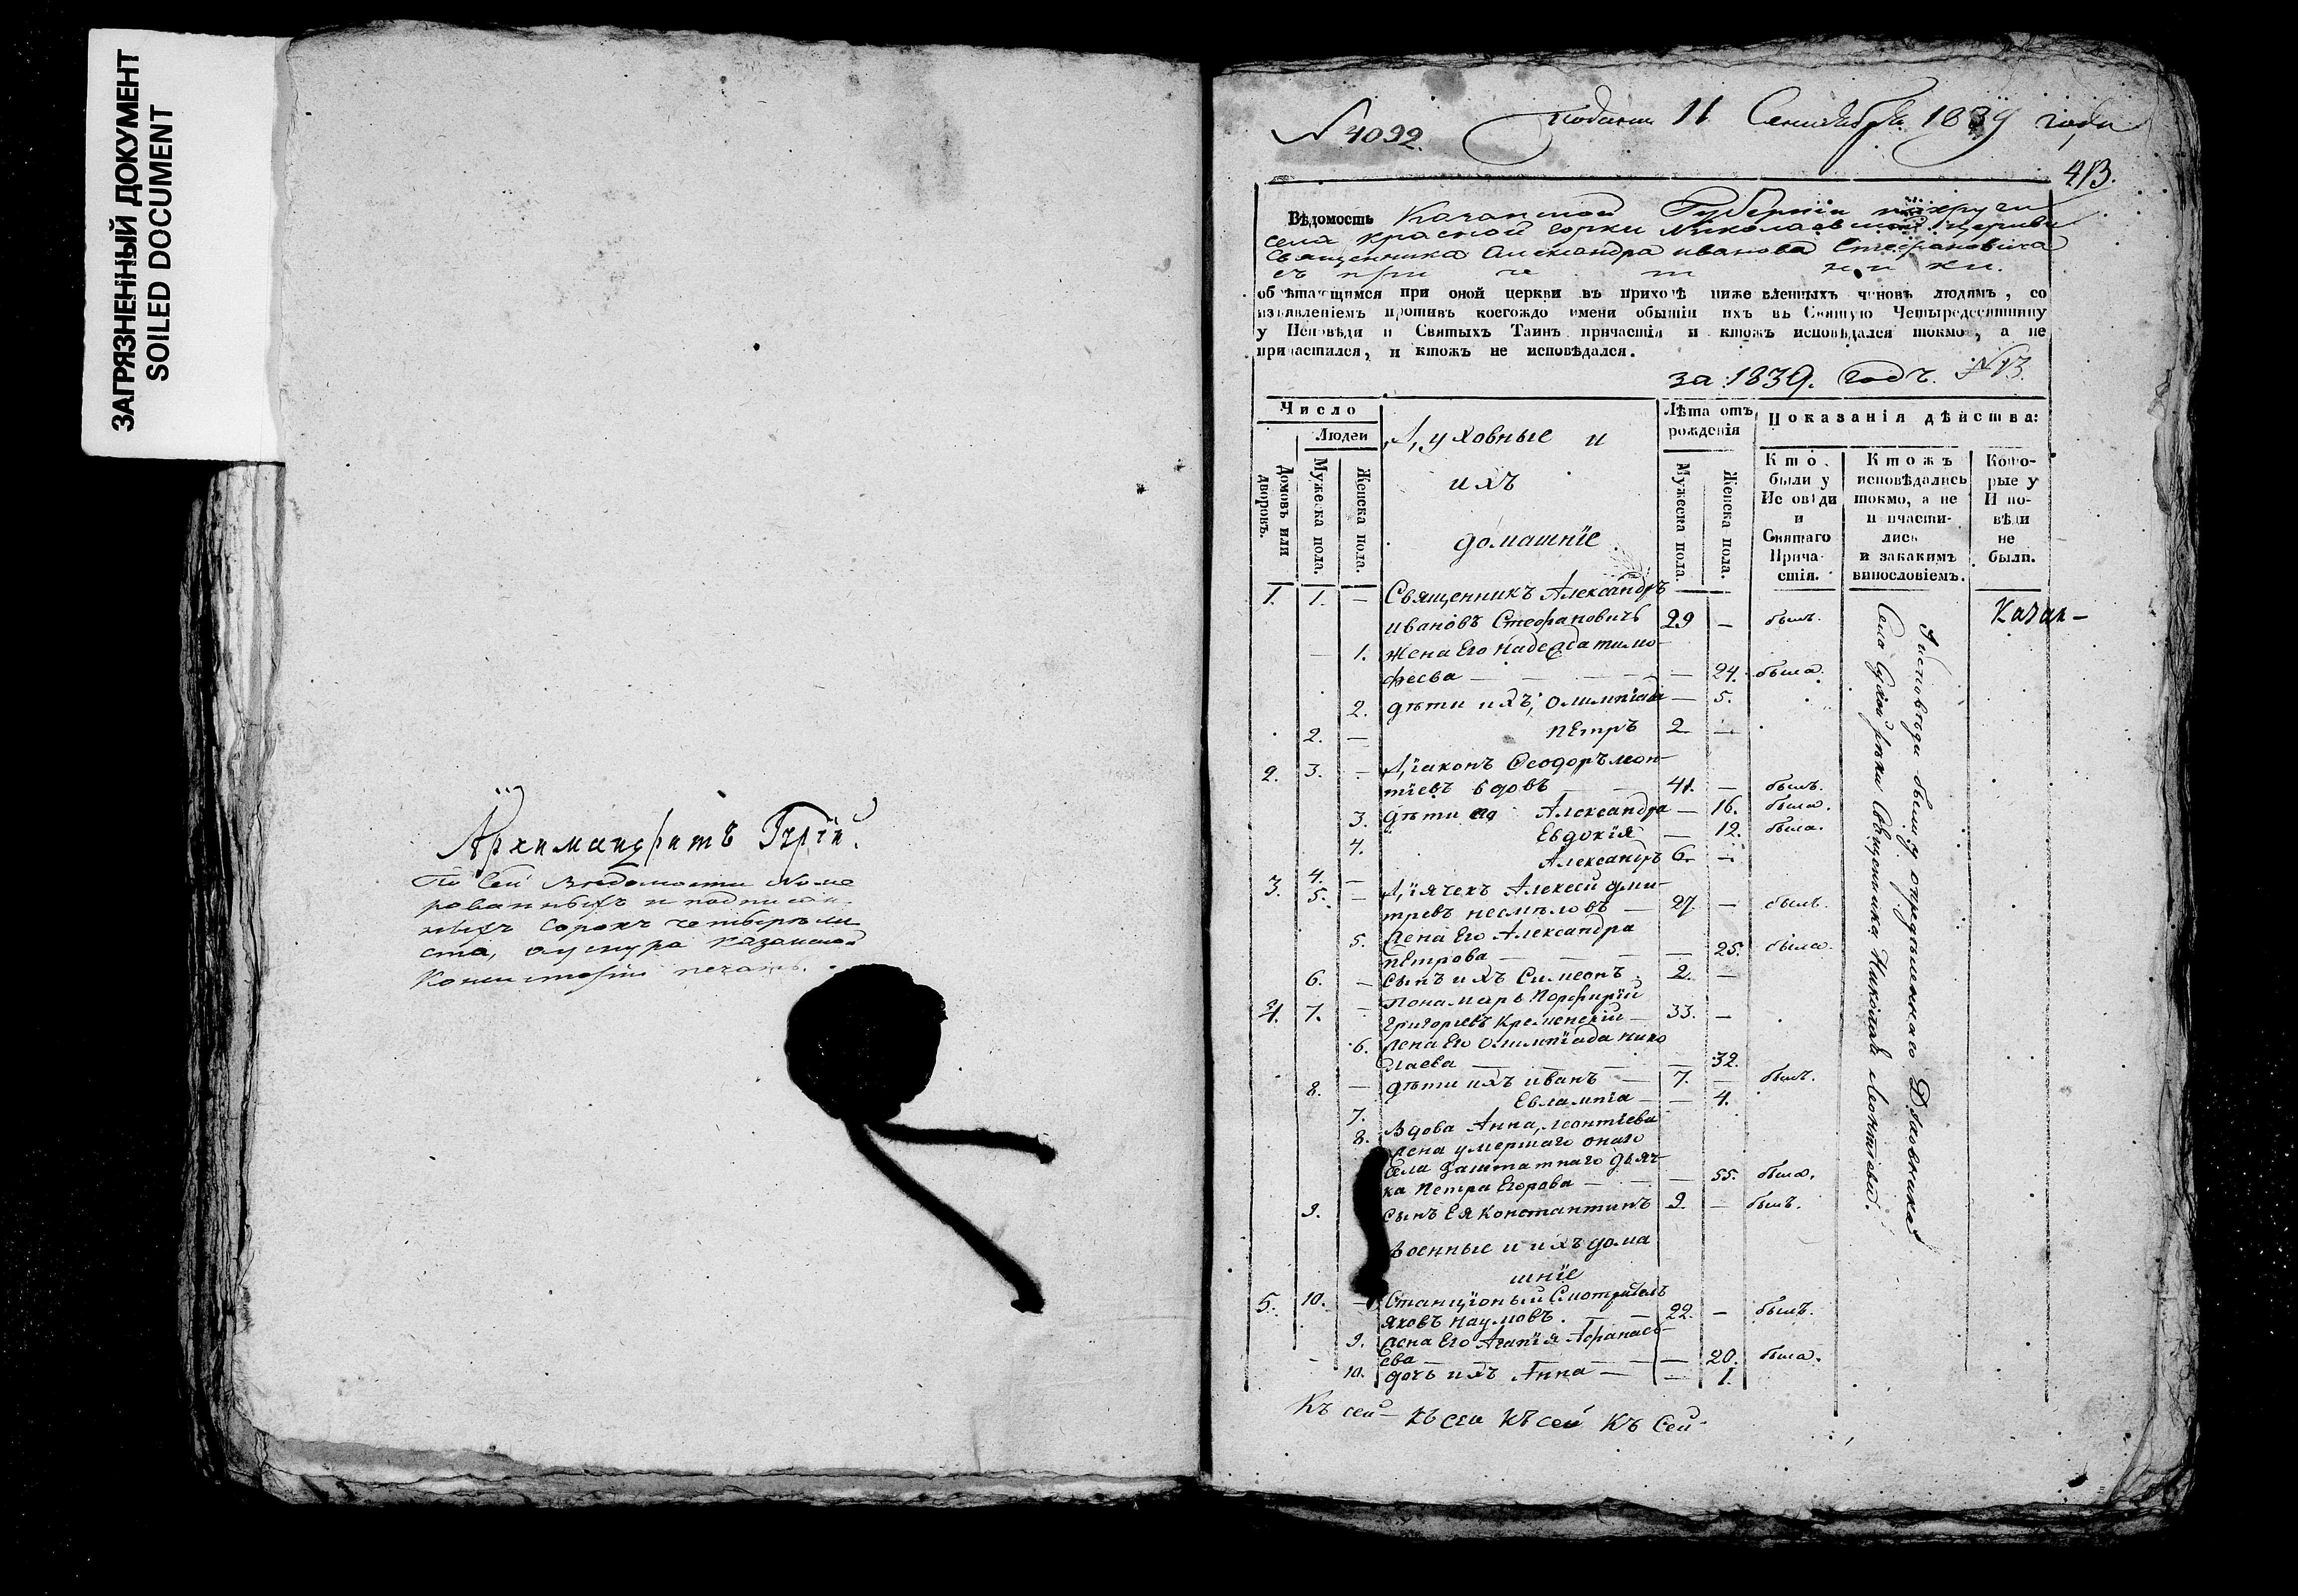 ЗАГРЯЗНЕННЫЙ ДОКУМЕНТ
SOILED DOCUMENT
Архимандритъ Гурій.
По сей Ведомости Номе
рованныхъ и подписан
ныхъ сорокъ четыре ли
ста, Казанской
Консисторіи печать.
N 4092. 11 Сентября 1839 года
413.
Вѣдомость Казанской Губерніи
села красной горки Николаевской Церкви
Священника Александра иванова Стефановича
съ при че т ни ки.
обрѣтающимся при оной церкви въ приходѣ нижеявленныхъ чиновъ людямъ, со
изъявленіемъ противъ коегождо имени бытіи ихъ въ Святую Четыредесятницу
у Исповѣди и Святыхъ Таинъ причастія и ктожъ исповѣдался токмо, а не
причастился, и ктожъ не исповѣдался.
за 1839. годъ. N 13.
Число
Людей
Домовъ или дворовъ.
Мужеска пола.
Женска пола.
Духовные и
ихъ
домашніе
Лѣта отъ рожденія
Мужеска пола.
Женска пола.
Показанія дѣйства:
Кто были у Исповѣди и Святаго Причастія.
Ктожъ исповѣдались токмо, а не причастились и закакимъ винословіемъ.
Которые у Исповѣди не были.
1. 1. — Священникъ Александръ
ивановъ Стефановичъ 29 — былъ. Казан—
— 1. жена Его Надежда тимо-
феева — — 24. была.
2. дѣти ихъ, Олимпіада — 5.
2. — пЕтръ 2 —
2. 3. — Діаконъ Ѳеодоръ леон-
тіевъ вдовъ 41. — былъ.
3. дѣти Александра — 16. была.
4. Евдокія — 12. была.
4. — Александръ 6. —
3. 5. — Діячекъ Алексей дми-
тревъ несмѣловъ — 27. — былъ.
5. жена Его Александра
пЕтрова — — 25. была.
6. — сынъ ихъ Симеонъ 2. —
4. 7. — Пономарь Порфирій
григорьевъ Кременскій — 33. —
6. жена Его Олимпіада нико
лаева — — 32.
8. — дѣти ихъ иванъ — 7. — былъ.
7. Евлампіа — — 4.
8. Вдова Анна, леонтіева
жена умершаго онаго
села Заштатнаго дьяч-
ка Петра Егорова — — 55. была.
9. сынъ Ея константинъ 9. — былъ.
военные и ихъ дома
шніе
5. 10. — Станціоный Смотритель
яковъ наумовъ. — 22. — былъ.
9. жена Его Агапія Афанась-
ева — — 20. была.
10. дочь ихъ Анна — — 1.
У исповѣди были у опредѣленнаго Духовника
Села Сухой рѣки Священника Николая Леонтіева.
Къ сей— къ сеи къ сей къ Сей